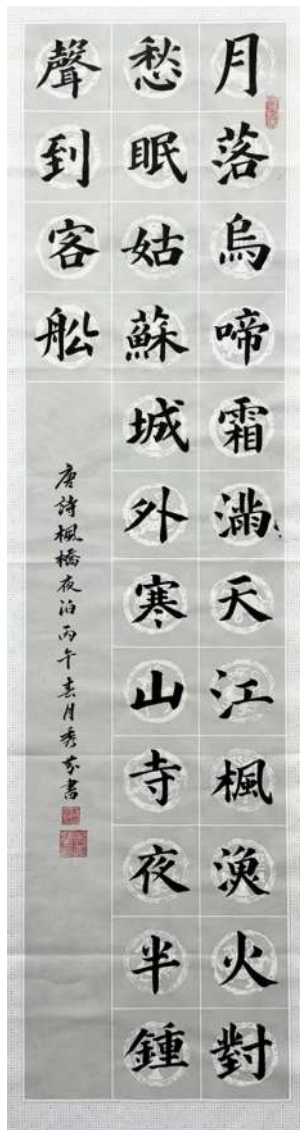 月落烏啼霜滿天江楓漁火對
愁眠姑蘇城外寒山寺夜半鍾
聲到客船
唐詩楓橋夜泊丙午春月秀芬書